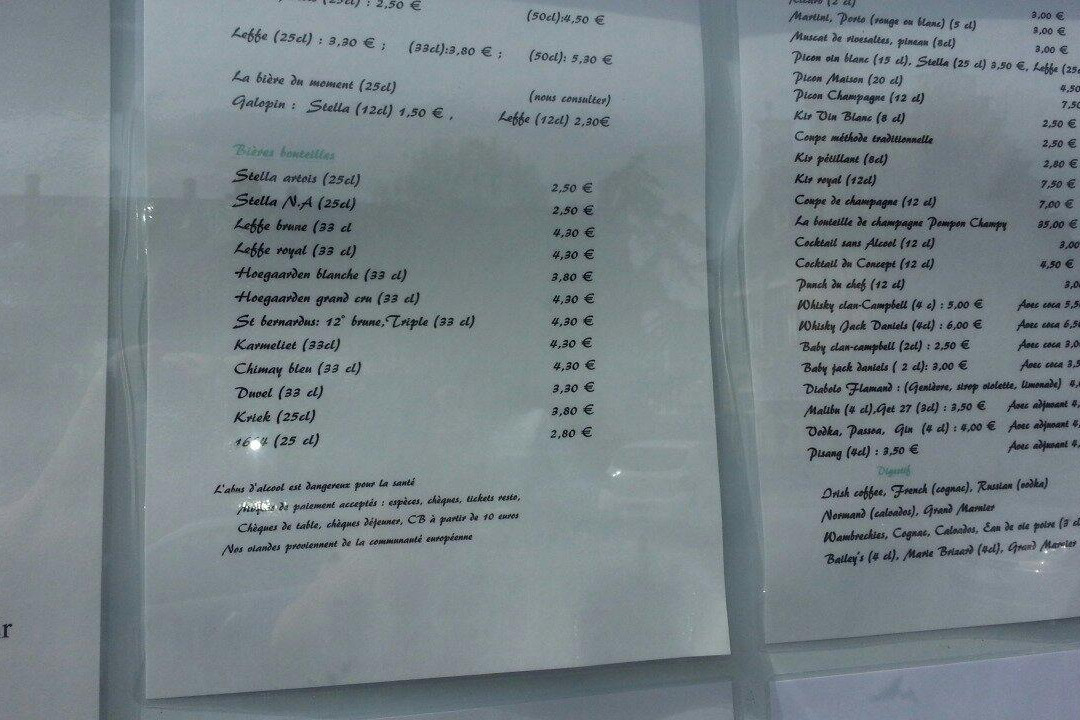 (25cl) : 2,50 € (50cl):4,50 €
Leffe (25cl) : 3,30 € ; (33cl):3,80 € ; (50cl): 5,30 €
La bière du moment (25cl) (nous consulter)
Galopin : Stella (12cl) 1,50 € , Leffe (12cl) 2,30€
Bières bouteilles
Stella artois (25cl) 2,50 €
Stella N.A (25cl) 2,50 €
Leffe brune (33 cl 4,30 €
Leffe royal (33 cl) 4,30 €
Hoegaarden blanche (33 cl) 3,80 €
Hoegaarden grand cru (33 cl) 4,30 €
St bernardus: 12° brune,Triple (33 cl) 4,30 €
Karmeliet (33cl) 4,30 €
Chimay bleu (33 cl) 4,30 €
Duvel (33 cl) 3,30 €
Kriek (25cl) 3,80 €
1664 (25 cl) 2,80 €
L'abus d'alcool est dangereux pour la santé
de paiement acceptés : espèces, chèques, tickets resto,
Chèques de table, chèques déjeuner, CB à partir de 10 euros
Nos viandes proviennent de la communauté européenne
r
(2 cl) 3,00 €
Martini, Porto (rouge ou blanc) (5 cl) 3,00 €
Muscat de rivesaltes, pineau (8cl) 3,00 €
Picon vin blanc (15 cl), Stella (25 cl) 3,50 €, Leffe (25c
Picon Maison (20 cl) 4,50
Picon Champagne (12 cl) 7,50
Kir Vin Blanc (8 cl) 2,50 €
Coupe méthode traditionnelle 2,50 €
Kir pétillant (8cl) 2,80 €
Kir royal (12cl) 7,50 €
Coupe de champagne (12 cl) 7,00 €
La bouteille de champagne Pompon Champy 35,00 €
Cocktail sans Alcool (12 cl) 3,00
Cocktail du Concept (12 cl) 4,50 €
Punch du chef (12 cl) 3,0
Whisky clan-Campbell (4 c) : 5,00 € Avec coca 5,5
Whisky Jack Daniels (4cl) : 6,00 € Avec coca 6,5
Baby clan-campbell (2cl) : 2,50 € Avec coca 3,0
Baby jack daniels ( 2 cl): 3,00 € Avec coca 3,5
Diabolo Flamand : (Genièvre, sirop violette, limonade) 4,
Malibu (4 cl),Get 27 (3cl) : 3,50 € Avec adjuvant 4,
Vodka, Passoa, Gin (4 cl) : 4,00 € Avec adjuvant 4,
Pisang (4cl) : 3,50 € Avec adjuvant 4,
Digestif
Irish coffee, French (cognac), Russian (vodka)
Normand (calvados), Grand Marnier
Wambrechies, Cognac, Calvados, Eau de vie poire (3 cl
Bailey's (4 cl), Marie Brizard (4cl), Grand Marnier